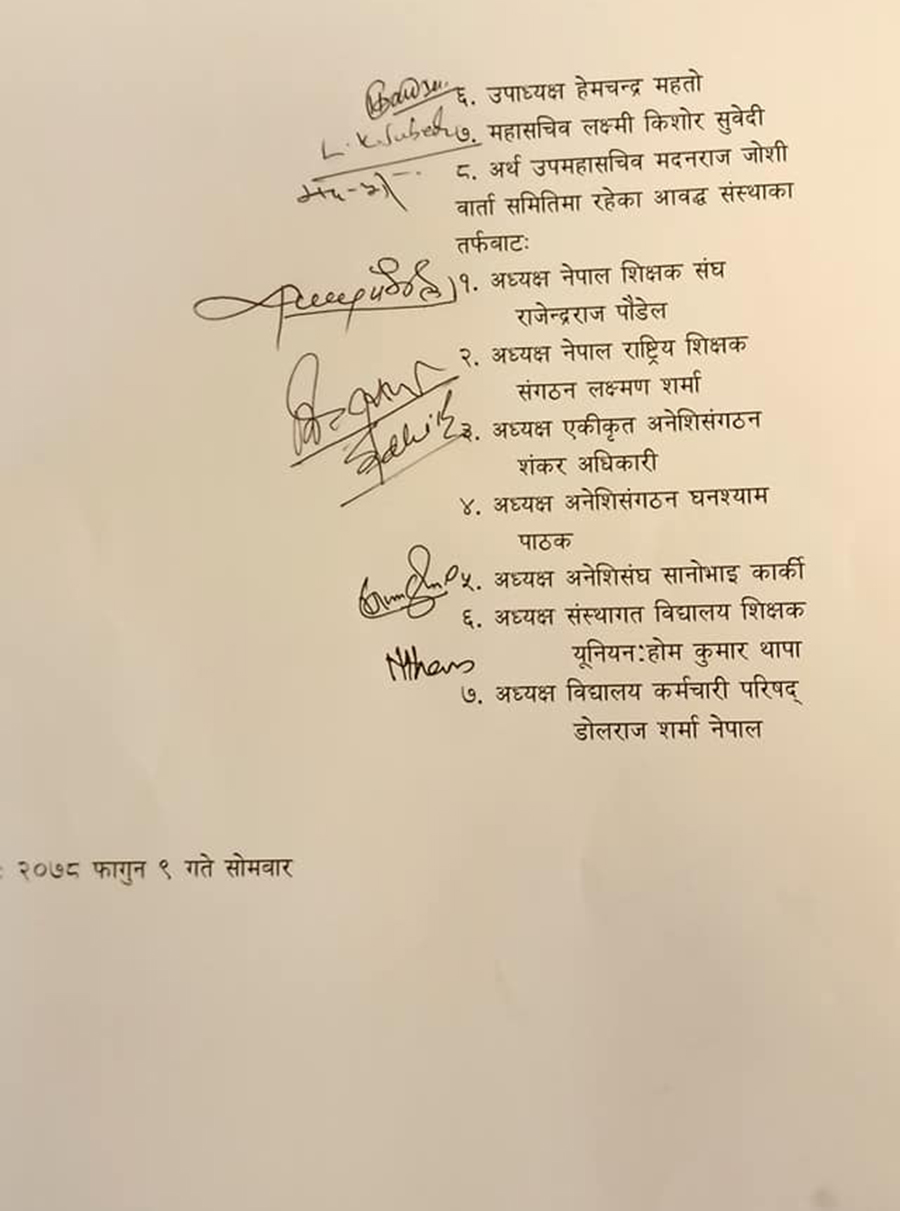 ६. उपाध्यक्ष हेमचन्द्र महतो
L. K. Subedi ७. महासचिव लक्ष्मी किशोर सुवेदी
८. अर्थ उपमहासचिव मदनराज जोशी
वार्ता समितिमा रहेका आवद्ध संस्थाका
तर्फवाटः
१. अध्यक्ष नेपाल शिक्षक संघ
राजेन्द्रराज पौडेल
२. अध्यक्ष नेपाल राष्ट्रिय शिक्षक
संगठन लक्ष्मण शर्मा
३. अध्यक्ष एकीकृत अनेशिसंगठन
शंकर अधिकारी
४. अध्यक्ष अनेशिसंगठन घनश्याम
पाठक
५. अध्यक्ष अनेशिसंघ सानोभाइ कार्की
६. अध्यक्ष संस्थागत विद्यालय शिक्षक
यूनियन:होम कुमार थापा
७. अध्यक्ष विद्यालय कर्मचारी परिषद्
डोलराज शर्मा नेपाल
: २०७८ फागुन ९ गते सोमवार